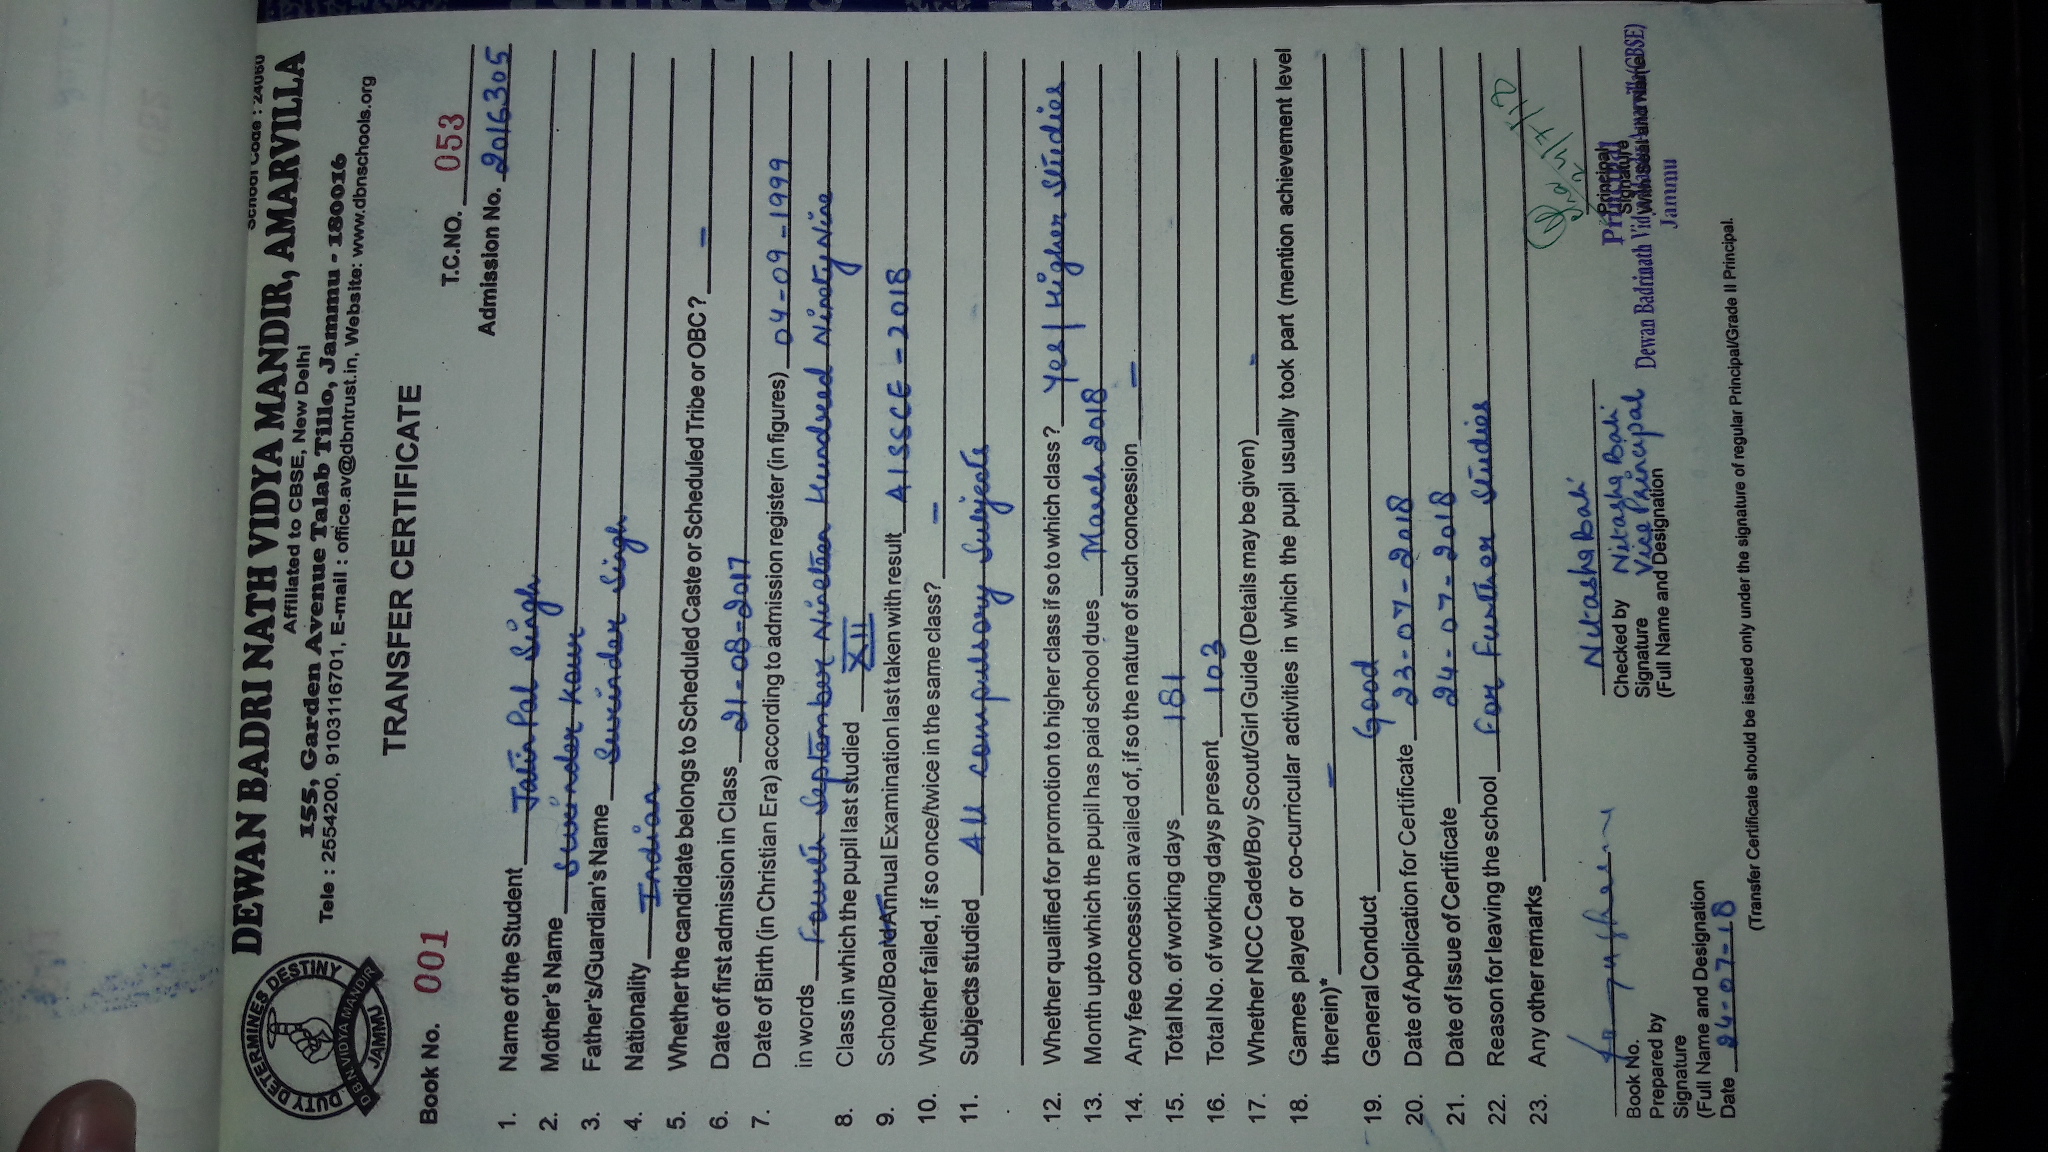 School Code : 24060
DEWAN BADRI NATH VIDYA MANDIR, AMARVILLA
Affiliated to CBSE, New Delhi
155, Garden Avenue Talab Tillo, Jammu - 180016
Tele : 2554200, 9103116701, E-mail : office.av@dbntrust.in, Website: www.dbnschools.org
DUTY DETERMINES DESTINY
D B N VIDYA MANDIR
JAMMU
TRANSFER CERTIFICATE
Book No. 001
T.C.NO. 053
Admission No. 2016305
1. Name of the Student Jatin Pal Singh
2. Mother's Name Surinder Kour
3. Father's/Guardian's Name Surinder Singh
4. Nationality Indian
5. Whether the candidate belongs to Scheduled Caste or Scheduled Tribe or OBC? –
6. Date of first admission in Class 21-08-2017
7. Date of Birth (in Christian Era) according to admission register (in figures) 04-09-1999
in words Fourth September Nineteen Hundred Ninety Nine
8. Class in which the pupil last studied XII
9. School/Board Annual Examination last taken with result AISSCE - 2018
10. Whether failed, if so once/twice in the same class? –
11. Subjects studied All compulsory Subjects
12. Whether qualified for promotion to higher class if so to which class? Yes/Higher Studies
13. Month upto which the pupil has paid school dues March 2018
14. Any fee concession availed of, if so the nature of such concession –
15. Total No. of working days 181
16. Total No. of working days present 103
17. Whether NCC Cadet/Boy Scout/Girl Guide (Details may be given) -
18. Games played or co-curricular activities in which the pupil usually took part (mention achievement level
therein)* –
19. General Conduct Good
20. Date of Application for Certificate 23-07-2018
21. Date of Issue of Certificate 24-07-2018
22. Reason for leaving the school For Further Studies
23. Any other remarks
Book No.
Prepared by
Signature
(Full Name and Designation
Date 24-07-18
Nitasha Bali
Checked by Nitasha Bali
Signature Vice Principal
(Full Name and Designation
Principal
Signature
Principal
Dewan Badrinath Vidya Mandir Amarvilla (CBSE)
Jammu
(Transfer Certificate should be issued only under the signature of regular Principal/Grade II Principal.